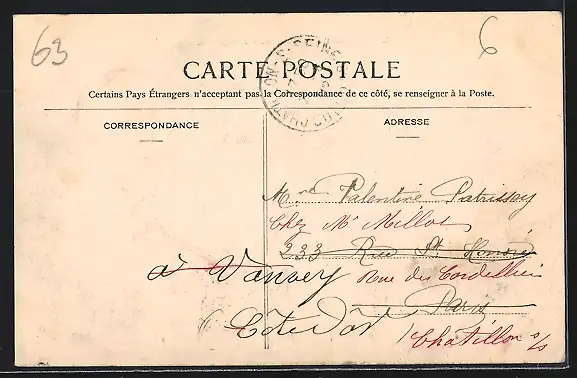 63
6
CARTE POSTALE
Certains Pays Étrangers n'acceptant pas la Correspondance de ce côté, se renseigner à la Poste.
CORRESPONDANCE
ADRESSE
CHATILLON-S-SEINE
Valentine Patrissoy
Chez Mr Millot
233 Rue St Honoré
à Vanvey
Rue des Cordelliers
Paris
Côte d'Or
Châtillon s/s